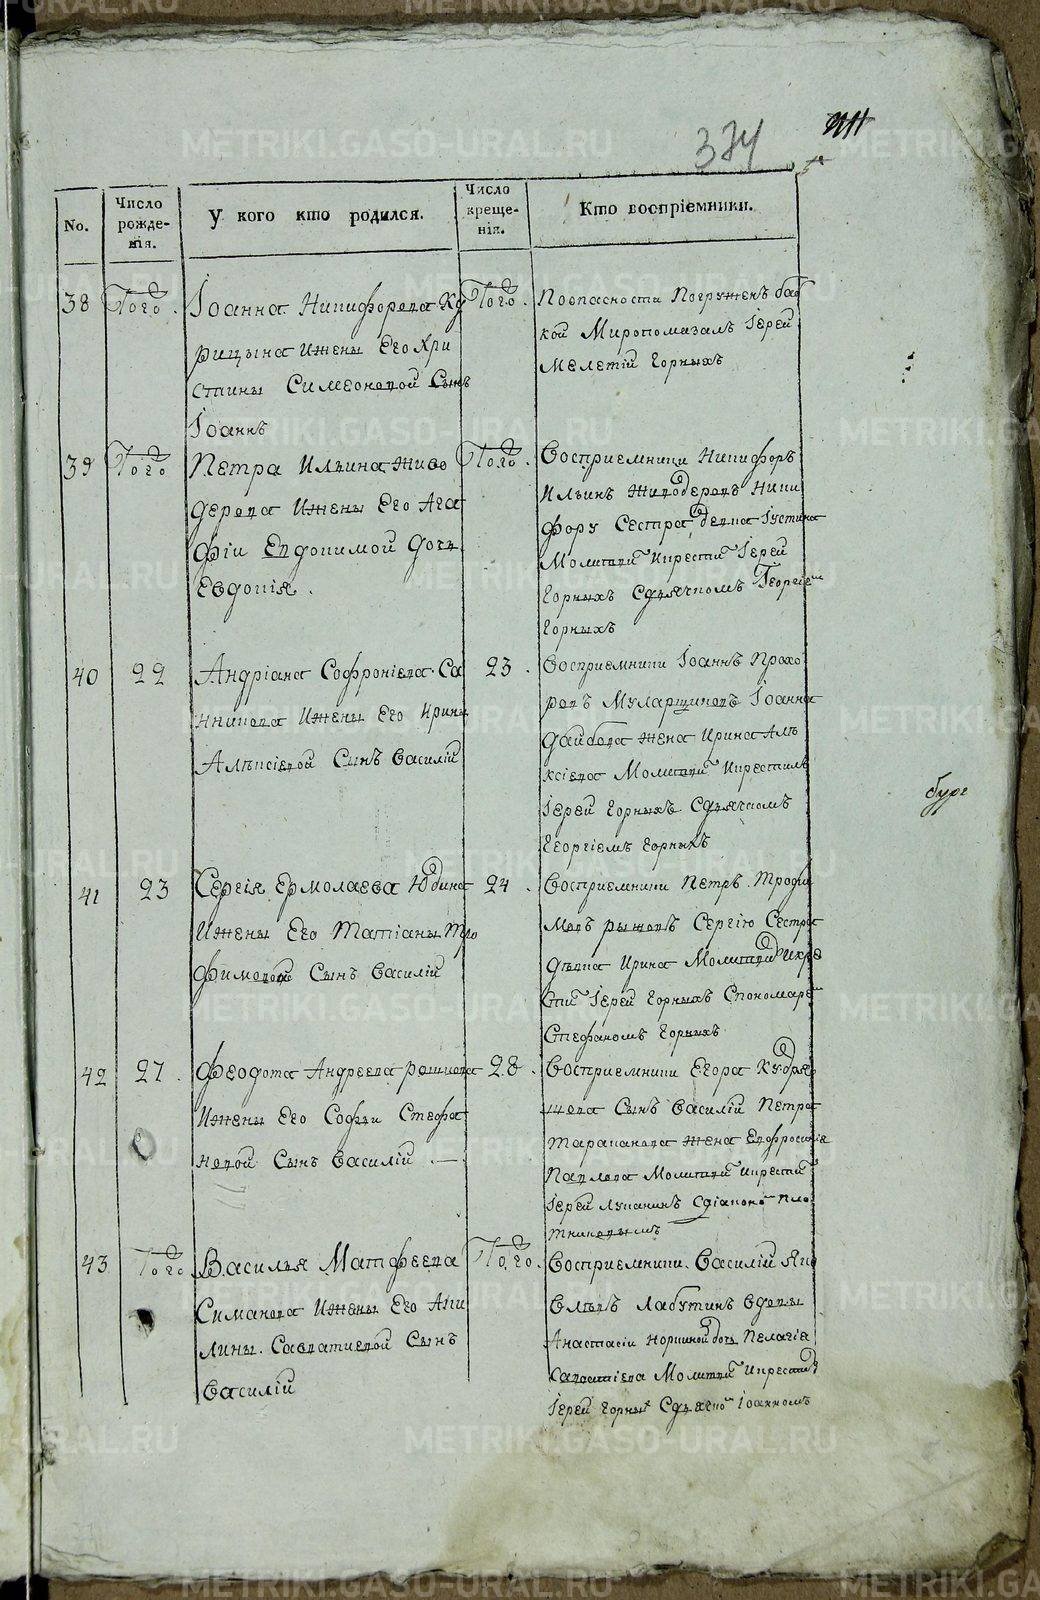 374
No.
Число рожде-нія.
У кого кто родился.
Число креще-нія.
Кто воспріемники.
38
Того
Іоанна Никифорова Ку
рицына Ижены Его Хри
стины Симеоновой Сынъ
Іоаннъ
Того.
Поопасности Погруженъ баб
кой Миропомазалъ Іерей
Мелетій Горныхъ
39
Того
Петра Ильина Живо
дерова Ижены Его Ага
фіи Евдокимой дочь
Евдокія.
Того.
Восприемники Никифоръ
Ильинъ Живодеровъ Ники
фору Сестра девка Іустина
Молитвилъ Икрестилъ Іерей
Горныхъ Сдьячкомъ Георгіемъ
Горныхъ
40
22
Андріана Софроніева Са
нникова Ижены Его Ирины
Алѣксіевой Сынъ Василій
23.
Восприемники Іоаннъ Прохо
ровъ Муларщиковъ Іоанна
Жена Ирина Алѣ
ксіева Молитвилъ Икрестилъ
Іерей Горныхъ Сдьячкомъ
Георгіемъ Горныхъ
41
23
Сергія Ермолаева Юдина
Ижены Его Татіаны Тро
фимовой Сынъ Василій
24.
Восприемники Петръ Трофи
мовъ Рыжовъ Сергію Сестра
дѣвка Ирина Молитвилъ Икре
стилъ Іерей Горныхъ Спономаремъ
Стефаномъ Горныхъ
42
27.
Феодота Андреева
Ижены Его Софьи Стефа
новой Сынъ Василій
28.
Восприемники Егора Кудря
шова Сынъ Василій Петра
Тараканова Жена Евфросинія
Павлова Молитвилъ Икрестилъ
Іерей Луканинъ Сдіакономъ Пло
тниковымъ
43
Того
Василья Матфеева
Симанова Ижены Его Аки
лины Савватиевой Сынъ
Василій
Того.
Восприемники Василій Яко
влевъ Лабутинъ Вдовы
Анастасіи дочь Пелагіа
Савватіева Молитвилъ Икрестилъ
Іерей Горныхъ Сдьячкомъ Іоанномъ